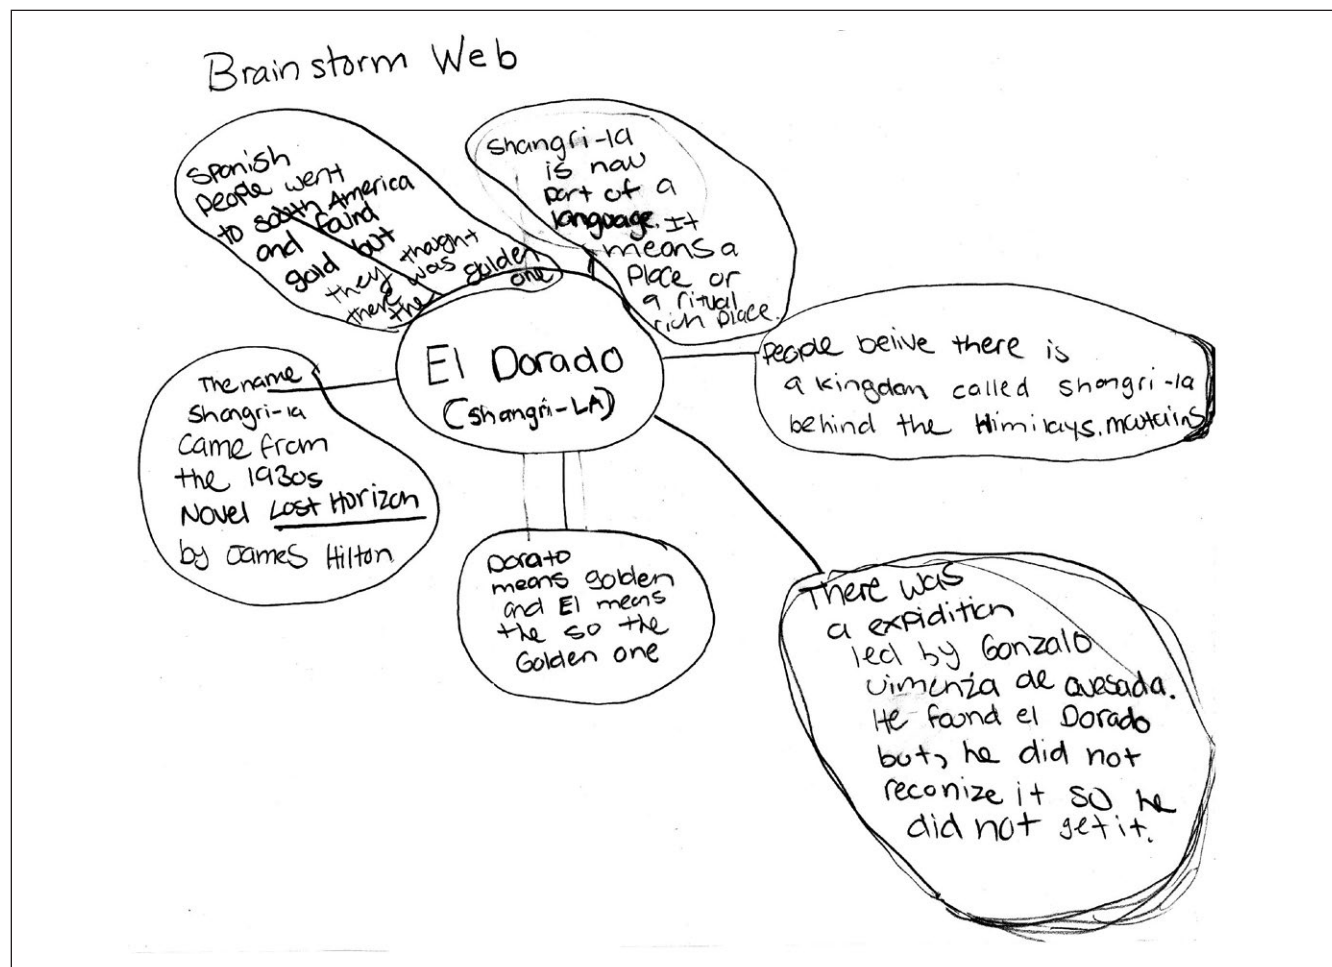 Brainstorm Web
Spanish
people went
to south America
and found
gold but
they thought
there was
the golden
one
Shangri-la
is now
part of a
language. It
means a
place or
a ritual
rich place.
El Dorado
(Shangri-LA)
People belive there is
a kingdom called Shangri-la
behind the Himilays. mountains
The name
Shangri-la
came from
the 1930s
Novel Lost Horizon
by James Hilton
Dorato
means golden
and El means
the so the
Golden one
There was
a expidition
led by Gonzalo
Jimenza de Quesada.
He found el Dorado
but, he did not
reconize it so he
did not get it.